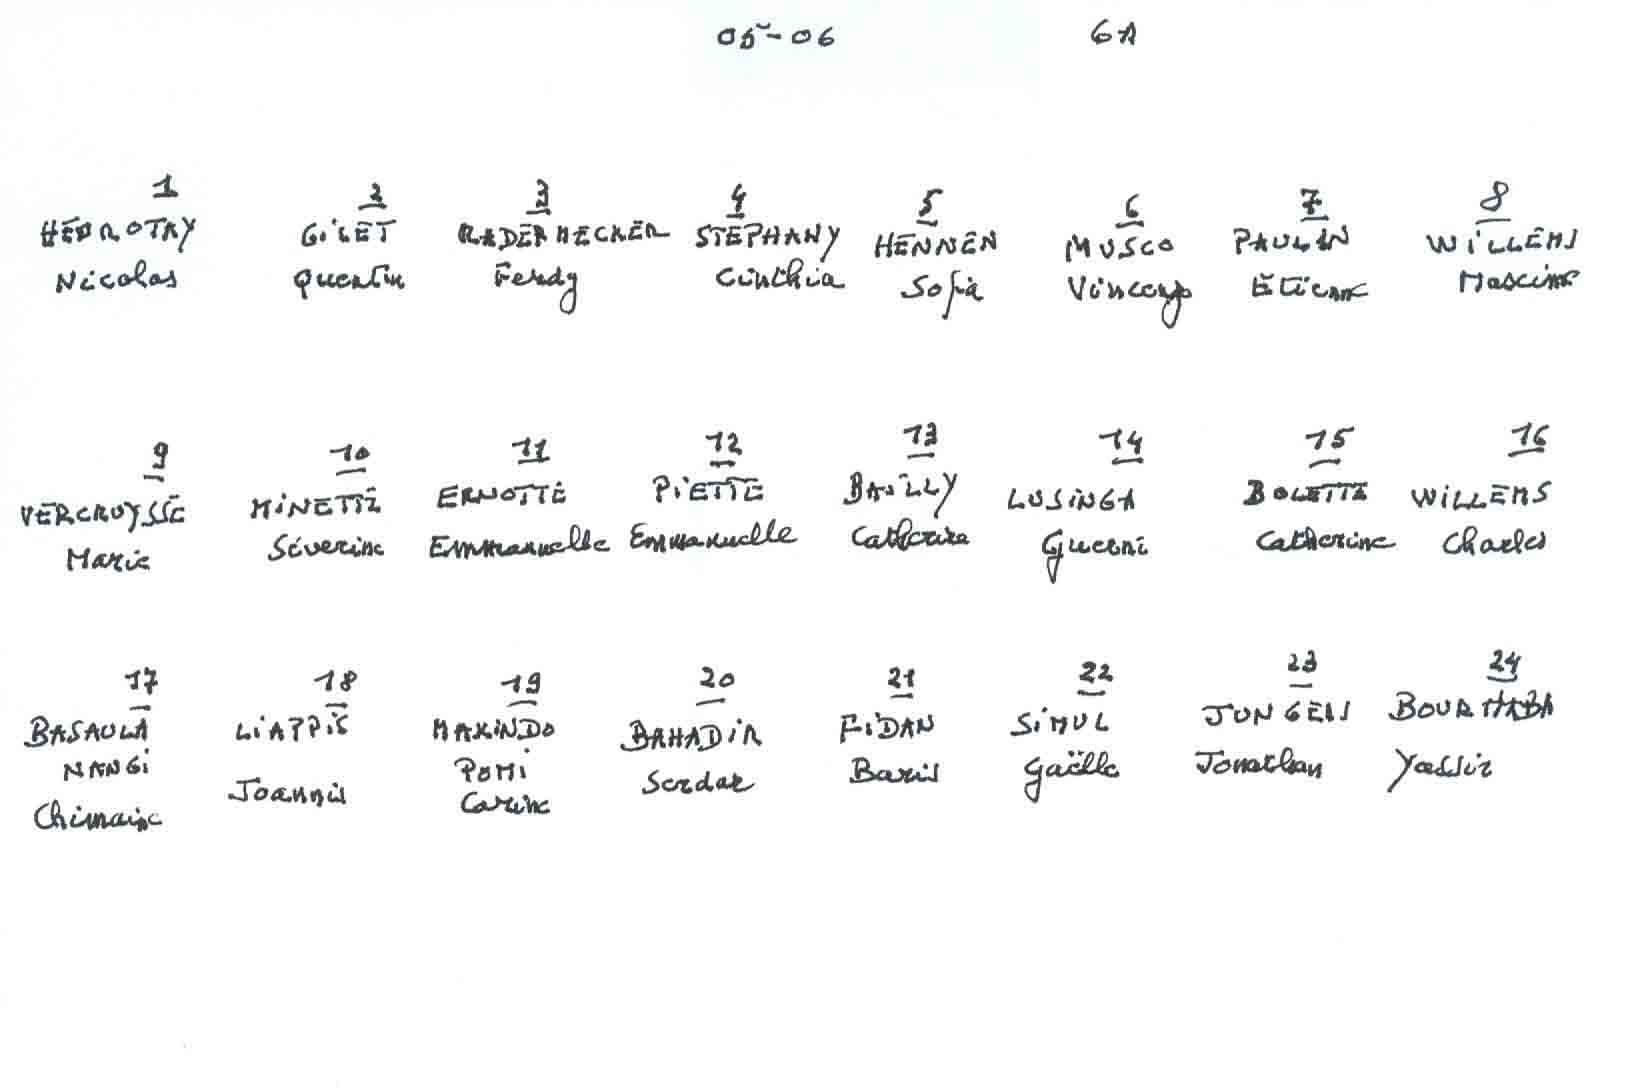 05-06 6A
1 2 3 4 5 6 7 8
HEDROTAY GILET RADERMECKER STEPHANY HENNEN MUSCO PAULIN WILLEMS
Nicolas Quentin Ferdy Cinthia Sofia Etienne Maxime
9 10 11 12 13 14 15 16
VERCRUYSSE MINETTE ERNOTTE PIETTE BAILLY LUSINGA BOLETTE WILLEMS
Marie Séverine Emmanuelle Emmanuelle Catherine Catherine Charles
17 18 19 20 21 22 23 24
BASAULA LIAPPIS MAKINDO BAHADIR FIDAN SIMUL JUNGERS BOURHABA
NANGI Joannis POMI Serdar Baris Gaëlle Jonathan Yassir
Carine